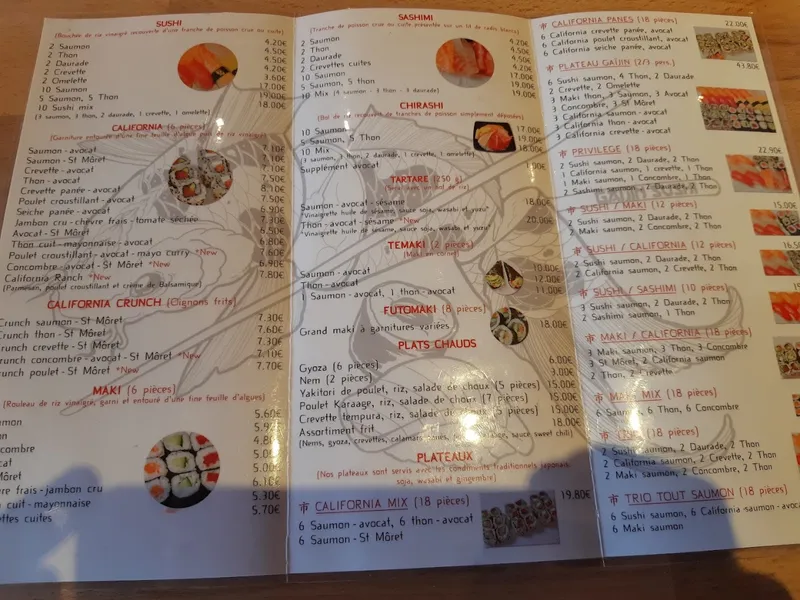 SUSHI
(Bouchée de riz vinaigré recouverte d'une tranche de poisson crue ou cuite)
2 Saumon 4.20€
2 Thon 4.50€
2 Daurade 4.50€
2 Crevette 4.20€
2 Omelette 3.60€
10 Saumon 17.00€
5 Saumon, 5 Thon 19.00€
10 Sushi mix 18.00€
(3 saumon, 3 thon, 2 daurade, 1 crevette, 1 omelette)
CALIFORNIA (6 pièces)
(Garniture entourée d'une fine feuille d'algue puis de riz vinaigré)
Saumon - avocat 7.10€
Saumon - St Môret 7.10€
Crevette - avocat 7.10€
Thon - avocat 7.20€
Crevette panée - avocat 8.10€
Poulet croustillant - avocat 7.50€
Seiche panée - avocat 6.90€
Jambon cru - chèvre frais - tomate séchée 7.70€
Avocat - St Môret 6.50€
Thon cuit - mayonnaise - avocat 6.80€
Poulet croustillant - avocat - mayo curry *New 7.60€
Concombre - avocat - St Môret *New 6.90€
California Ranch *New 7.80€
(Parmesan, poulet croustillant et crème de Balsamique)
CALIFORNIA CRUNCH (Oignons frits)
Crunch saumon - St Môret 7.30€
Crunch thon - St Môret 7.60€
Crunch crevette - St Môret 7.30€
Crunch concombre - avocat - St Môret *New 7.10€
Crunch poulet - St Môret *New 7.70€
MAKI (6 pièces)
(Rouleau de riz vinaigré, garni et entouré d'une fine feuille d'algues)
5.60€
5.90€
4.80€
5.00€
St Môret 5.00€
frais - jambon cru 6.10€
cuit - mayonnaise 5.30€
cuites 5.70€
SASHIMI
(Tranche de poisson crue ou cuite présentée sur un lit de radis blancs)
2 Saumon 4.20€
2 Thon 4.50€
2 Daurade 4.50€
2 Crevettes cuites 4.20€
10 Saumon 17.00€
5 Saumon, 5 thon 19.00€
10 Mix (4 saumon - 3 thon - 3 daurade) 19.00€
CHIRASHI
(Bol de riz recouvert de tranches de poisson simplement déposées)
10 Saumon 17.00€
5 Saumon, 5 Thon 19.00€
10 Mix 18.00€
(3 saumon, 3 thon, 2 daurade, 1 crevette, 1 omelette)
Supplément avocat
TARTARE (250 g)
Saumon - avocat - sésame 18.00€
"Vinaigrette huile de sésame, sauce soja, wasabi et yuzu"
Thon - avocat - sésame *New 20.00€
"Vinaigrette huile de sésame, sauce soja, wasabi et yuzu"
TEMAKI (2 pièces)
(Maki en cornet)
Saumon - avocat 10.00€
Thon - avocat 12.00€
1 Saumon - avocat, 1 thon - avocat 11.00€
FUTOMAKI (8 pièces)
Grand maki à garnitures variées 18.00€
PLATS CHAUDS
Gyoza (6 pièces) 6.00€
Nem (2 pièces) 3.00€
Yakitori de poulet, riz, salade de choux (5 pièces) 15.00€
Poulet Karaage, riz, salade de choux (7 pièces) 15.00€
Crevette tempura, riz, salade de choux (5 pièces) 15.00€
Assortiment frit 18.00€
PLATEAUX
(Nos plateaux sont servis avec les condiments traditionnels japonais: soja, wasabi et gingembre)
CALIFORNIA MIX (18 pièces) 19.80€
6 Saumon - avocat, 6 thon - avocat
6 Saumon - St Môret
CALIFORNIA PANES (18 pièces) 22.00€
6 California crevette panée, avocat
6 California poulet croustillant, avocat
6 California seiche panée, avocat
PLATEAU GAIJIN (2/3 pers.) 43.80€
6 Sushi saumon, 4 Thon, 2 Daurade
2 Crevette, 2 Omelette
3 Maki thon, 3 Saumon, 3 Avocat
3 Concombre, 3 St Môret
3 California saumon - avocat
3 California thon - avocat
3 California crevette - avocat
PRIVILEGE (18 pièces) 22.90€
2 Sushi saumon, 2 Daurade, 2 Thon
2 California saumon, 1 crevette, 1 Thon
1 Maki saumon, 1 Concombre, 1 Thon
2 Sashimi saumon, 2 Daurade, 2 Thon
SUSHI / MAKI (12 pièces) 15.00€
2 Sushi saumon, 2 Daurade, 2 Thon
2 Maki saumon, 2 Concombre, 2 Thon
SUSHI / CALIFORNIA (12 pièces) 16.50
2 Sushi saumon, 2 Daurade, 2 Thon
2 California saumon, 2 Crevette, 2 Thon
SUSHI / SASHIMI (10 pièces)
2 Sushi saumon, 2 Daurade, 2 Thon
2 Sashimi saumon, 2 Thon
MAKI / CALIFORNIA (18 pièces)
3 Maki saumon, 3 Thon, 3 Concombre
3 St Môret, 2 California saumon
2 Thon, 2 Crevette
MAKI MIX (18 pièces)
6 Saumon, 6 Thon, 6 Concombre
(18 pièces)
2 Sushi saumon, 2 Daurade, 2 Thon
2 California saumon, 2 Crevette, 2 Thon
2 Maki saumon, 2 Concombre, 2 Thon
TRIO TOUT SAUMON (18 pièces)
6 Sushi saumon, 6 California saumon - avocat
6 Maki saumon